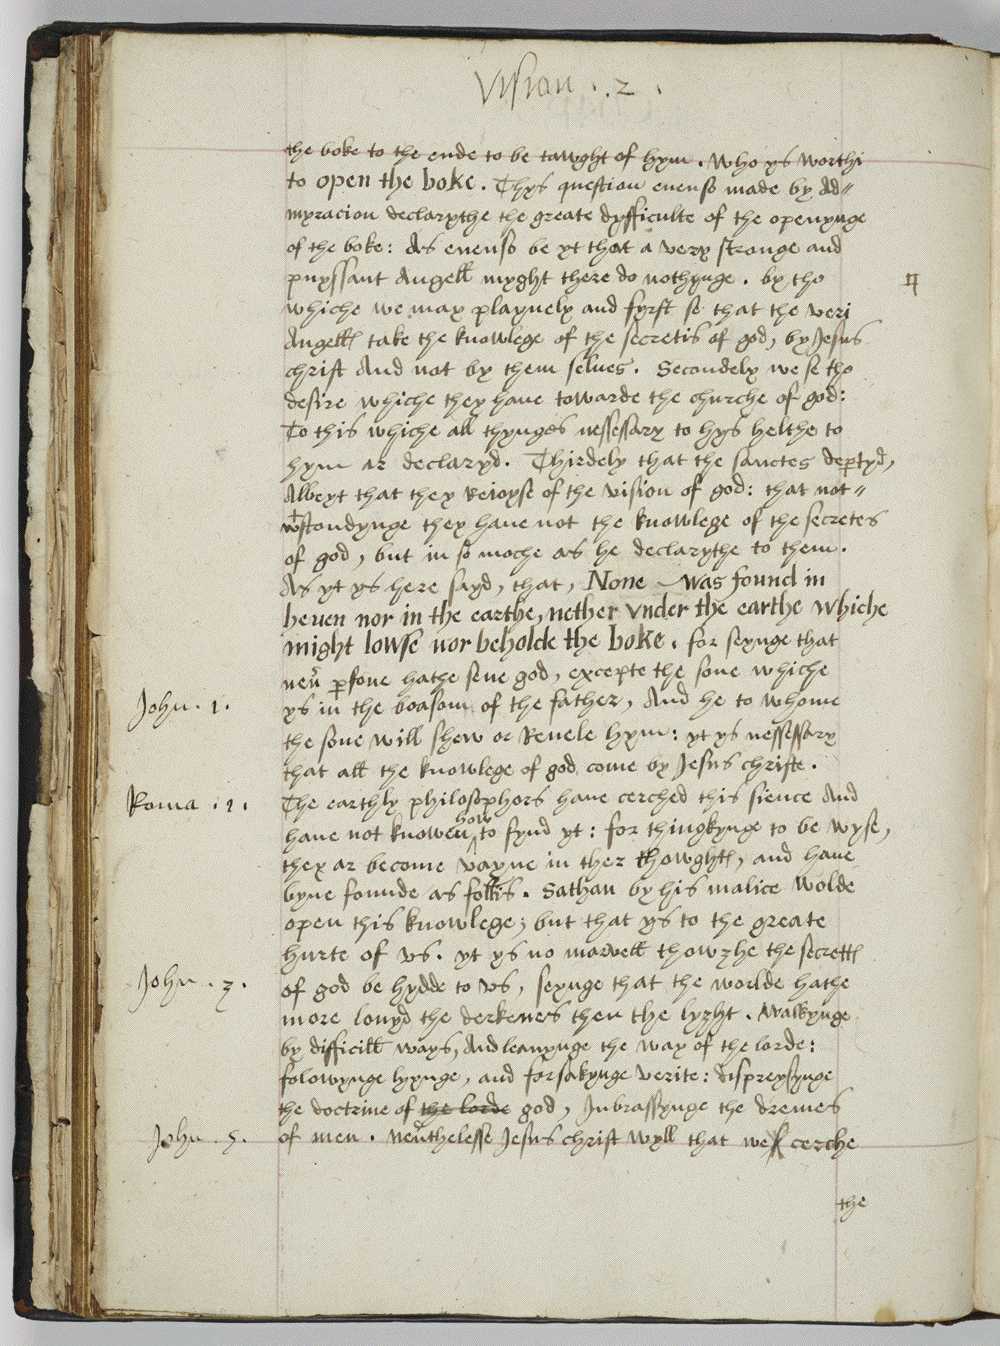 Vision . 2 .
the boke to the ende to be tawght of hym . Who ys worthi
to open the boke . Thys question evenso made by ad=
myracion declarythe the greate dyfficulte of the openynge
of the boke : As evenso be yt that a very stronge and
puyssant Angell myght there do nothynge . by the
whiche we may playnely and fyrst se that the veri
Angells take the knowlege of the secretis of god, by Jesus
christ And not by them selves . Secondely we se the
desire whiche they have towarde the churche of god :
To this whiche all thynges nessessary to hys helthe to
hym ar declaryd . Thirdely that the sanctes depertyd,
Albeyt that they Reioyse of the vision of god : that not=
wtstondynge they have not the knowlege of the secretes
of god, but in so moche as he declarythe to them .
As yt ys here sayd, that, None was found in
heuen nor in the earthe, nether vnder the earthe whiche
might lowse nor beholde the boke . for seynge that
neuer persone hathe sene god, excepte the sone whiche
John . 1 .
ys in the boasom of the father, And he to whome
the sone will shew or Revele hym : yt ys nessessary
that all the knowlege of god come by Jesus christe .
Roma . 1 .
The earthly philosophers have cerched this sience And
have not knowen how to fynd yt : for thingkynge to be wyse,
they ar become vayne in ther thowghts, and have
byne founde as follis . Sathan by his malice wolde
open this knowlege ; but that ys to the greate
hurte of vs . yt ys no marvell thowzhe the secretts
John . 3 .
of god be hydde to vs, seynge that the worlde hathe
more lovyd the derkenes then the lyzht . Walkynge
by difficill ways, And leavynge the way of the lorde :
folowynge lyynge, and forsakynge verite : dispreysynge
the doctrine of the lorde god, Inbrassynge the dremes
John . 5 .
of men . Neuerthelesse Jesus christ wyll that we cerche
the